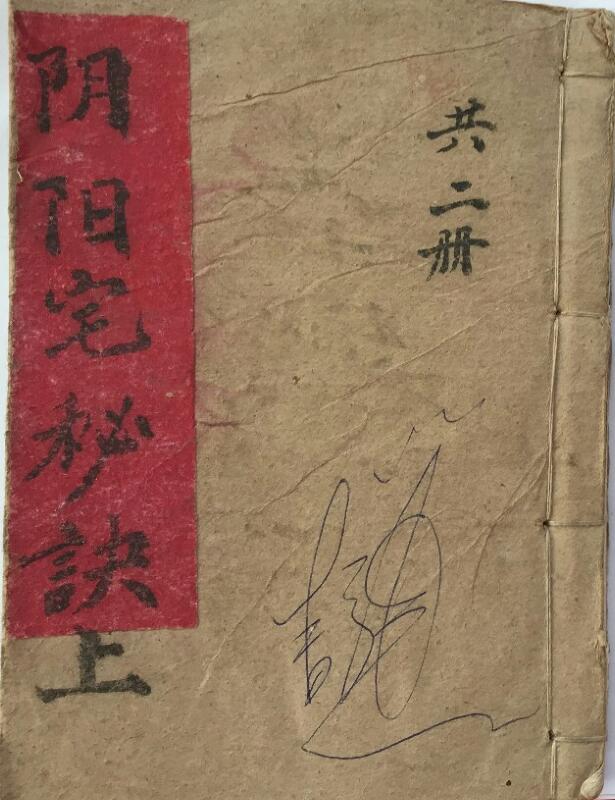 共二册
阴阳宅秘訣上